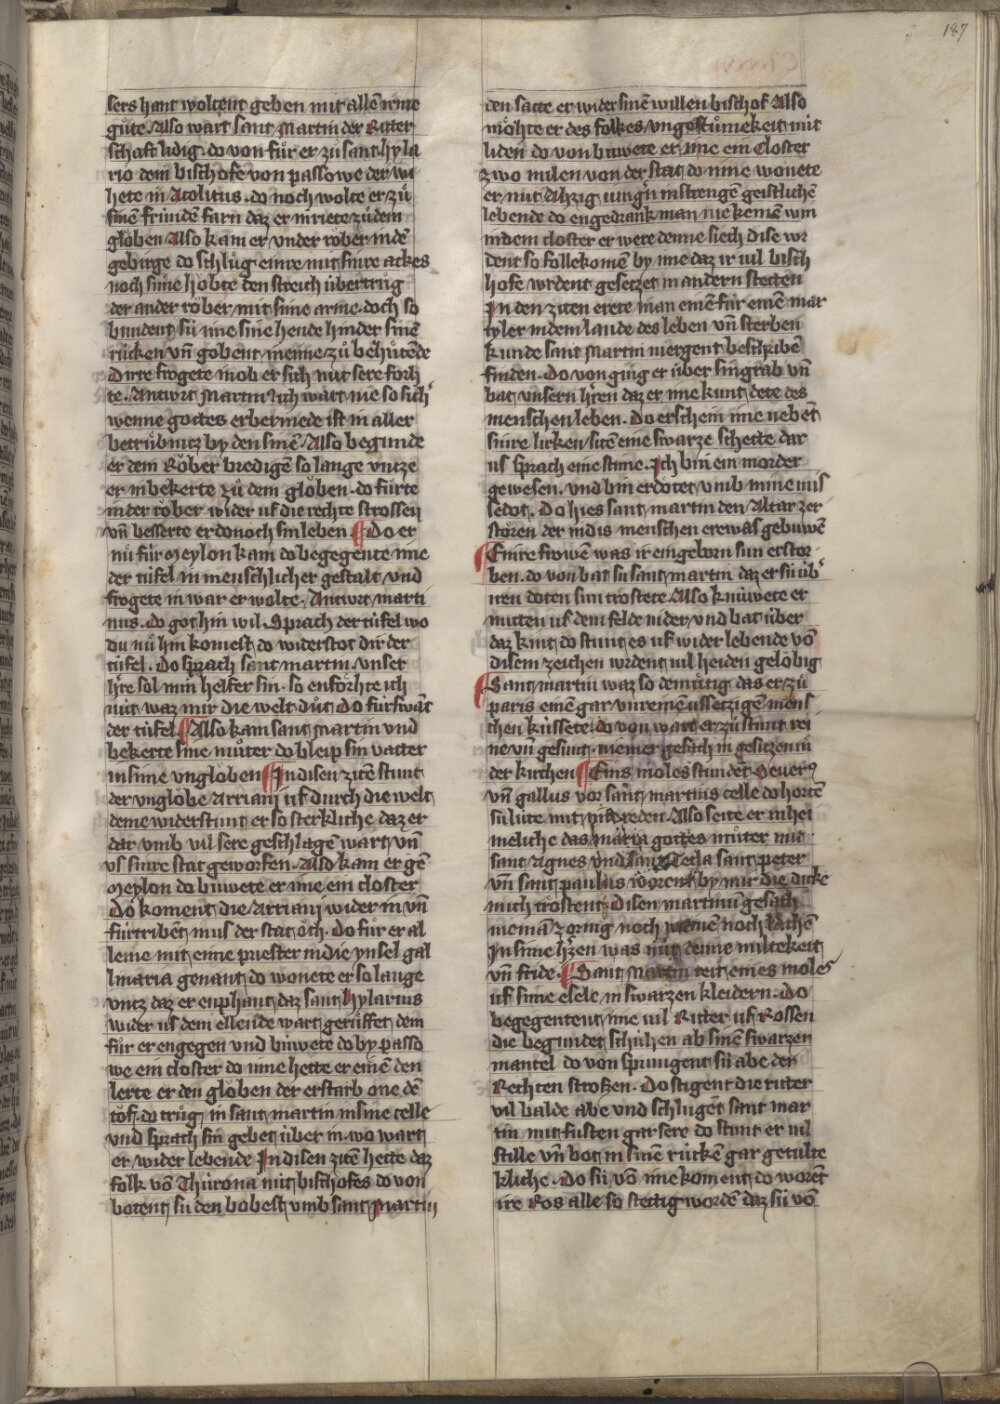 187
sers hant woltent geben mit allē irme
gůte. Also wart sant Martin der Ritter
schaft lidig do von fůr er zů sant hyla
rio dem bischofe von passowe der wi
hete in Acolitus. do noch wolte er zů
sinē frúnden farn daz er in riete zů dem
glöben Also kam er vnder röber in dē
gebirge do schlůg einre mit sinre ackes
noch sime höbte den streich úbertrůg
der ander röber mit sime arme. doch so
bundent sú ime sine hende hinder sinē
rúcken vn̄ gobent in eime zů behůtēde
Dirre frogete in ob er sich nút sere forh
te. Antwrt Martin Ich wart nie so sich
wenne gottes erbermede ist in aller
betrúbnúz by den sinē Also begunde
er dem Röber bredigē so lange vntze
er in bekerte zů dem glöben. do fůrte
in der röber wider uf die rechte strossen
vn̄ besserte er donoch sin leben ¶ Do er
nů fúr Meylon kam do begegente ime
der túfel in menschlicher gestalt vnd
frogete in war er wolte. Antwrt marti
nus. do got hin wil. Sprach der túfel wo
du nů hin komest do widerstot dir der
túfel. Do sprach sant martin vnser
hre sol min helfer sin. so enförhte ich
nút waz mir die welt důt Do furswāt
der túfel ¶ Also kam sant Martin vnd
bekerte sine můter do bleip sin vatter
in sime vnglöben ¶ In disen zitē stunt
der vnglöbe Arriani uf durch die welt
deme widerstunt er so sterkliche daz er
dar vmb vil sere geschlagē wart vn̄
vs sinre stat geworfen. Also kam er gē
Meylon do buwete er ime ein closter
Do koment die Arriani wider in vn̄
fúrtribet in us der stat öch. Do fůr er al
leine mit eime priester in die ynsel gal
linaria genant do wonete er so lange
vntz daz er enphant daz sant hylarius
wider us dem ellende wart gerůffet dem
fůr er engegen vnd buwete do by passo
we ein closter do inne hette er einē den
lerte er den glöben der erstarb one dē
töf. do trůg in sant martin in sine celle
vnd sprach sin gebet úber in. wo wart
er wider lebende In disen zitē hette daz
folk vō Thurona nút bischofes do von
botent sú den bobest vmb sant Martin
den satte er wider sinē willen bischof Also
möhte er des folkes vngestůmekeit nút
liden do von buwete er ime ein Closter
zwo milen von der stat do inne wonete
er mit Ahzig iungn in strengē geistlichē
lebende do engedrank man nie keinē win
in dem closter er were denne siech dise wr
dent so follekomē by ime daz ir vil bisch
hofe wrdent gesetzet in andern stetten
In den ziten erete man einē fúr einē mar
tyler in dem lande des leben vn̄ sterben
kunde sant Martin niergent beschribē
finden. Do von ging er úber sin grab vn̄
bat vnsern hren daz er ime kunt dete des
menschen leben. Do erschein ime nebēt
sinre lirken sitē eine swarze schette dar
us sprach eine stime. Ich bin ein morder
gewesen. vnd bin erdötet vmb mine mis
sedot. Do hies sant martin den Altar zer
stören der in dis menschen ere was gebuwē
¶ Einre frowē was ir eingeborn sun erstor
ben. do von bat sú sant martin daz er sú úb
iren doten sun trostete Also knúwete er
mitten uf dem felde nider vnd bat úber
daz kint do stunt es uf wider lebende vō
disem zeichen wrdent vil heiden gelöbig
¶ Sant martin waz so demůtig das er zů
paris einē gar vnreinē ussetzigē mens
chen kússete. do von wart er zů stunt rei
ne vn̄ gesunt. niemer gesach in gesitzen in
der kirchen ¶ Eins moles stundēt Severus
vn̄ gallus vor sant martins celle do hortē
sú lúte mit reden. Also seite er in hei
meliche das maria gottes můter mit
sant Agnes vnd sant Tecla sant peter
vn̄ sant paulus worent by mir die dicke
mich trostent. Disen martinū gesach
niemā zornig noch noch lachē
In sime hrzen was nút denne miltekeit
vn̄ fride. ¶ Sant Martin reit eines moles
uf sime esele in swarzen kleidern. Do
begegentent ime vil Ritter uf Rossen
die begundet schúhen ab sinē swarzen
mantel do von sprungent sú abe der
Rechten strossen. Do stigent die ritter
vil balde abe vnd schlugēt sant mar
tin mit fústen gar sere do stunt er vil
stille vn̄ bot in sinē rúcken gar getulte
kliche. Do sú vō ime koment do worēt
ire Ros alle so stettig wordē daz sú vō